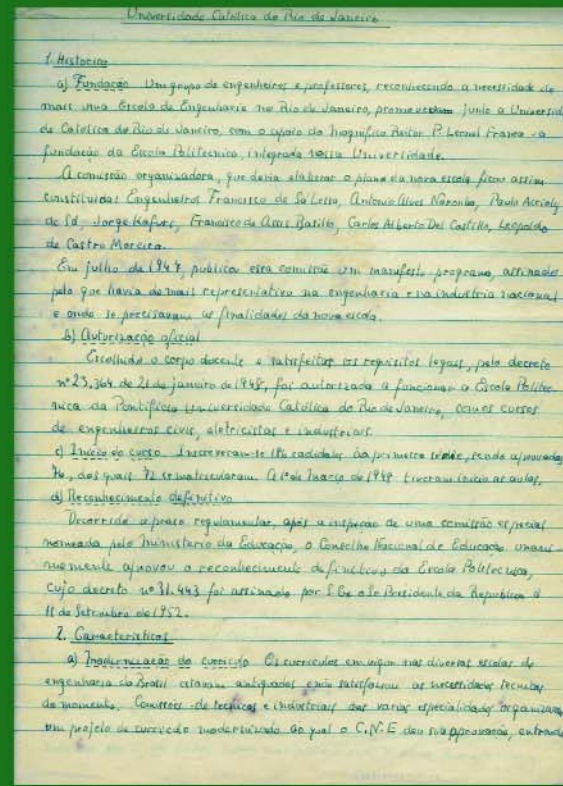 Universidade Católica do Rio de Janeiro
1. Historico
a) Fundação Um grupo de engenheiros e professores, reconhecendo a necessidade de
mais uma Escola de Engenharia no Rio de Janeiro, promoveram junto a Universida
de Catolica do Rio de Janeiro, com o apoio do Magnifico Reitor P. Leonel Franca a
fundação da Escola Politecnica, integrada nessa Universidade.
A comissão organizadora, que devia elaborar o plano da nova escola ficou assim
constituida: Engenheiros Francisco de Sá Lessa, Antonio Alves Noronha, Paulo Accioly
de Sá, Jorge Kafuri, Francisco de Assis Basilio, Carlos Alberto Del Castillo, Leopoldo
de Castro Moreira.
Em julho de 1947, publicou essa comissão um manifesto programa, assinado
pelo que havia de mais representativo na engenharia e na industria nacional
e onde se precisavam as finalidades da nova escola.
b) Autorização oficial
Escolhido o corpo docente e satisfeitas os requisitos legais, pelo decreto
nº 25,364 de 21 de janeiro de 1948, foi autorizada a funcionar a Escola Politec-
nica da Pontificia Universidade Católica do Rio de Janeiro, com os cursos
de engenheiros civis, eletricistas e industriais.
c) Início do curso. Inscreveram-se cadidatos à primeira série, sendo aprovados
76, dos quais 72 se matricularam. A 1º de março de 1948 tiveram início as aulas.
d) Reconhecimento definitivo
Decorrido o prazo regulamentar, após a inspeção de uma comissão especial
nomeada pelo Ministerio da Educação, o Conselho Nacional de Educação unani
memente aprovou o reconhecimento definitivo da Escola Politecnica,
cujo decreto nº 31.443 foi assinado por S. Ex. o Sr. Presidente da Republica a
11 de Setembro de 1952.
2. Caracteristicas
a) Modernização do curriculo Os curriculos em vigor nas diversas escolas de
engenharia do Brasil estavam antiquados e não satisfaziam as necessidades tecnicas
do momento. Comissões de tecnicos e industriais das varias especialidades organizaram
um projeto de curriculo modernizado ao qual o C.N.E deu sua aprovação, entrando